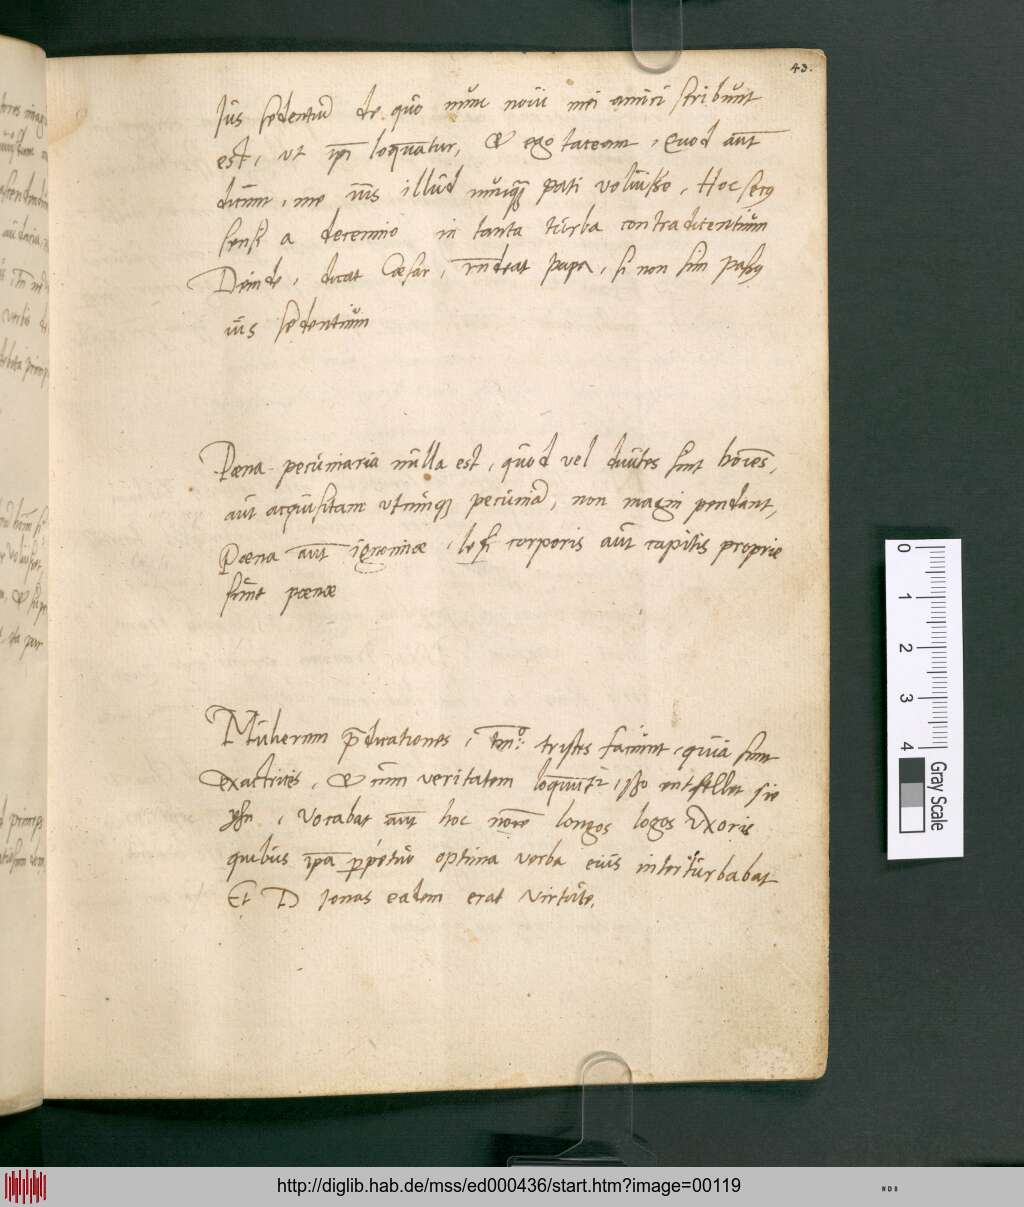 43.
Ius sedentiũ de quo nunc novi mei amici scribunt
est, ut ipi loquantur, & ego taceam, Quod aūt
dicunt, me ius illud nunquã pati voluisse, Hoc secus
sensi a decennio in tanta turba contradicentium
Deinde, dicat Cæsar, rñdeat papa, si non sim passus
ius sedentium
Pœna pecuniaria nulla est, quod vel divites sunt homines,
aut acquisitam utcunque pecuniã, non magni pendant,
Pœna aūt ignominiæ, læsi corporis aut capitis proprie
sunt pœnæ
Mulierum p̄dicationes, tristes faciunt, quia sunt
& cum veritatem loquunt²
, Vocabat aūt hoc longos logos Vxoris
quibus ipa ppetuo optima verba eius interturbabat
Et D Ionas eadem erat virtute.
0
1
2
3
4
Gray Scale
http://diglib.hab.de/mss/ed000436/start.htm?image=00119